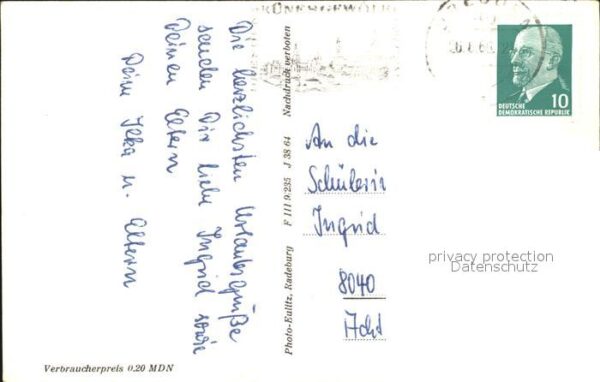 Die herzlichsten Urlaubsgrüße
senden Dir liebe Ingrid sowie
Deinen Eltern
Deine Ilka u. Eltern
Verbraucherpreis 0,20 MDN
Photo-Eulitz, Radeburg F 111 9.235 J 38 64 Nachdruck verboten
DEUTSCHE
DEMOKRATISCHE REPUBLIK
10
An die
Schülerin
Ingrid
8040
privacy protection
Datenschutz